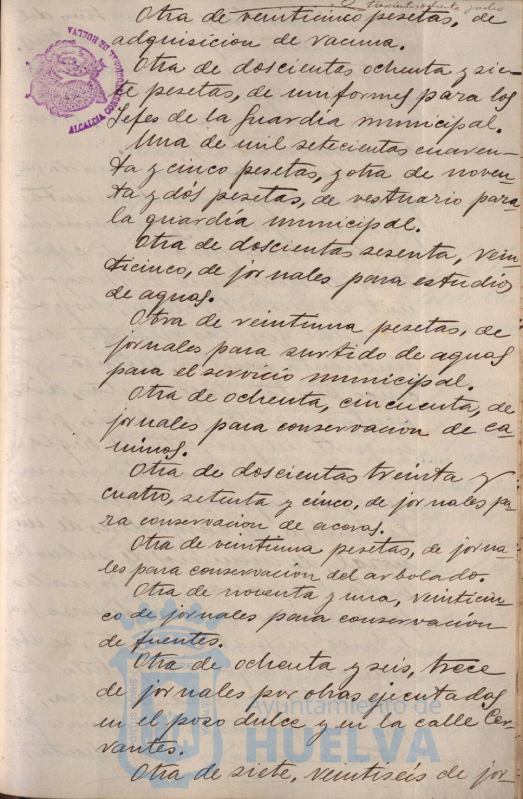 Otra de veinticinco pesetas, de
adquisicion de vacuna.
Otra de doscientas ochenta y sie-
te pesetas, de uniformes para los
Jefes de la Guardia municipal.
Una de mil setecientas cuaren-
ta y cinco pesetas, y otra de noven-
ta y dós pesetas, de vestuario para
la guardia municipal.
Otra de doscientas sesenta, vein-
ticinco, de jornales para estudios
de aguas.
Otra de veintiuna pesetas, de
jornales para surtido de aguas
para el servicio municipal.
Otra de ochenta, cincuenta, de
jornales para conservacion de ca-
minos.
Otra de doscientas treinta y
cuatro, setenta y cinco, de jornales pa-
ra conservacion de aceras.
Otra de veintiuna pesetas, de jorna-
les para conservacion del arbolado.
Otra de noventa y una, veinticin-
co de jornales para conservacion
de fuentes.
Otra de ochenta y seis, trece
de jornales por obras ejecutadas
en el pozo dulce y en la calle Cer-
vantes.
Otra de siete, veintiseis de jor-
ALCALDIA CONSTITUCIONAL DE HUELVA
Ayuntamiento de
HUELVA